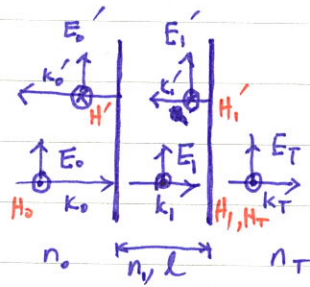 E₀′ E₁′
k₀′ k₁′
H′ H₁′
E₀ E₁ E_T
H₀ k₀ k₁ H₁, H_T k_T
n₀ n₁, l n_T